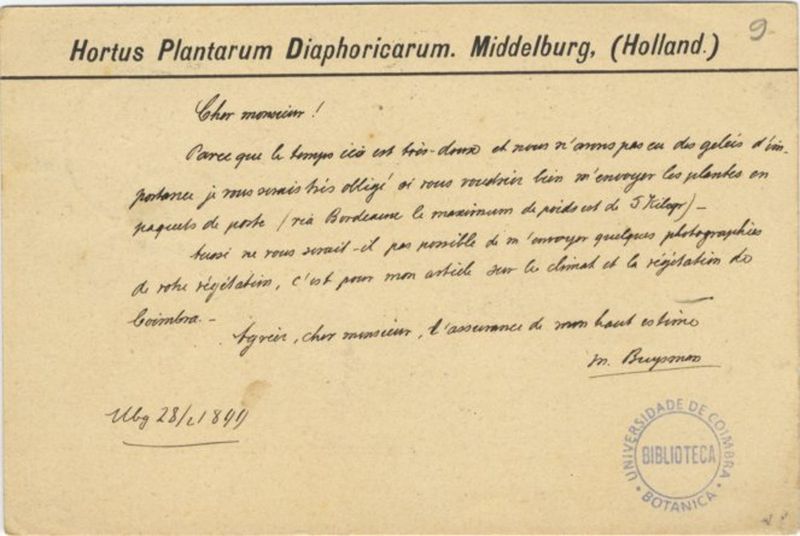 9
Hortus Plantarum Diaphoricarum. Middelburg, (Holland.)
Cher monsieur!
Parce que le temps ici est très-doux et nous n'avons pas eu des gelées d'im-
portance je vous serais très obligé si vous voudriez bien m'envoyer les plantes en
paquets de poste (via Bordeaux le maximum de poids est de 5 Kilogr) -
Aussi ne vous serait-il pas possible de m'envoyer quelques photographies
de votre végétation, c'est pour mon article sur le climat et la végétation de
Coimbra. -
Agréez, cher monsieur, l'assurance de mon haut estime
M. Buysman
Mbg 28/ 1899
UNIVERSIDADE DE COIMBRA
BIBLIOTECA
BOTANICA